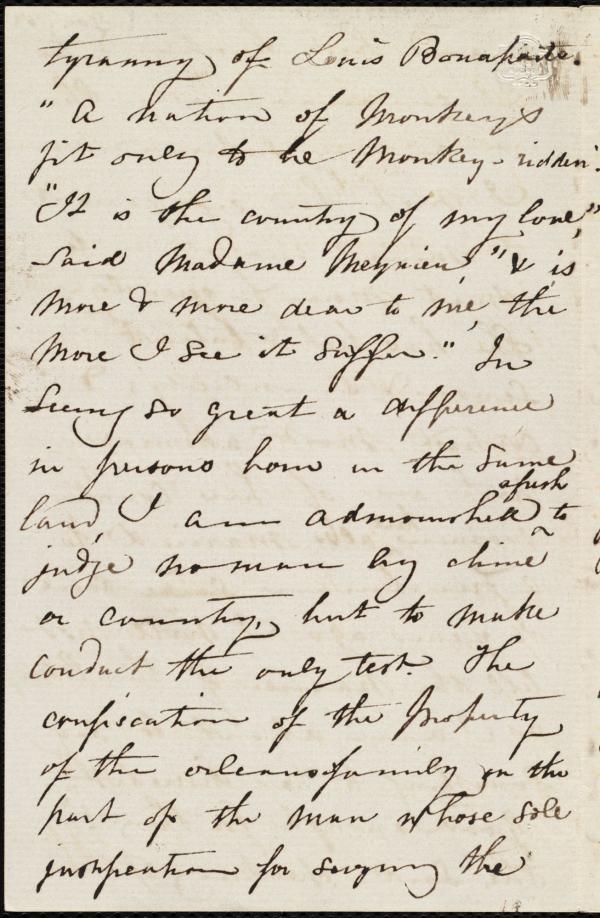 tyranny of Louis Bonaparte.
" A nation of Monkeys
fit only to be Monkey-ridden".
"It is the country of my love,"
said Madame Meynieu, "& is
more & more dear to me, the
more I see it suffer." In
seeing so great a difference
in persons born in the same
land, I am admonished afresh to
judge no man by clime
or country, but to make
conduct the only test. The
confiscation of the Property
of the orleans family on the
part of the man whose sole
justification for seizing the